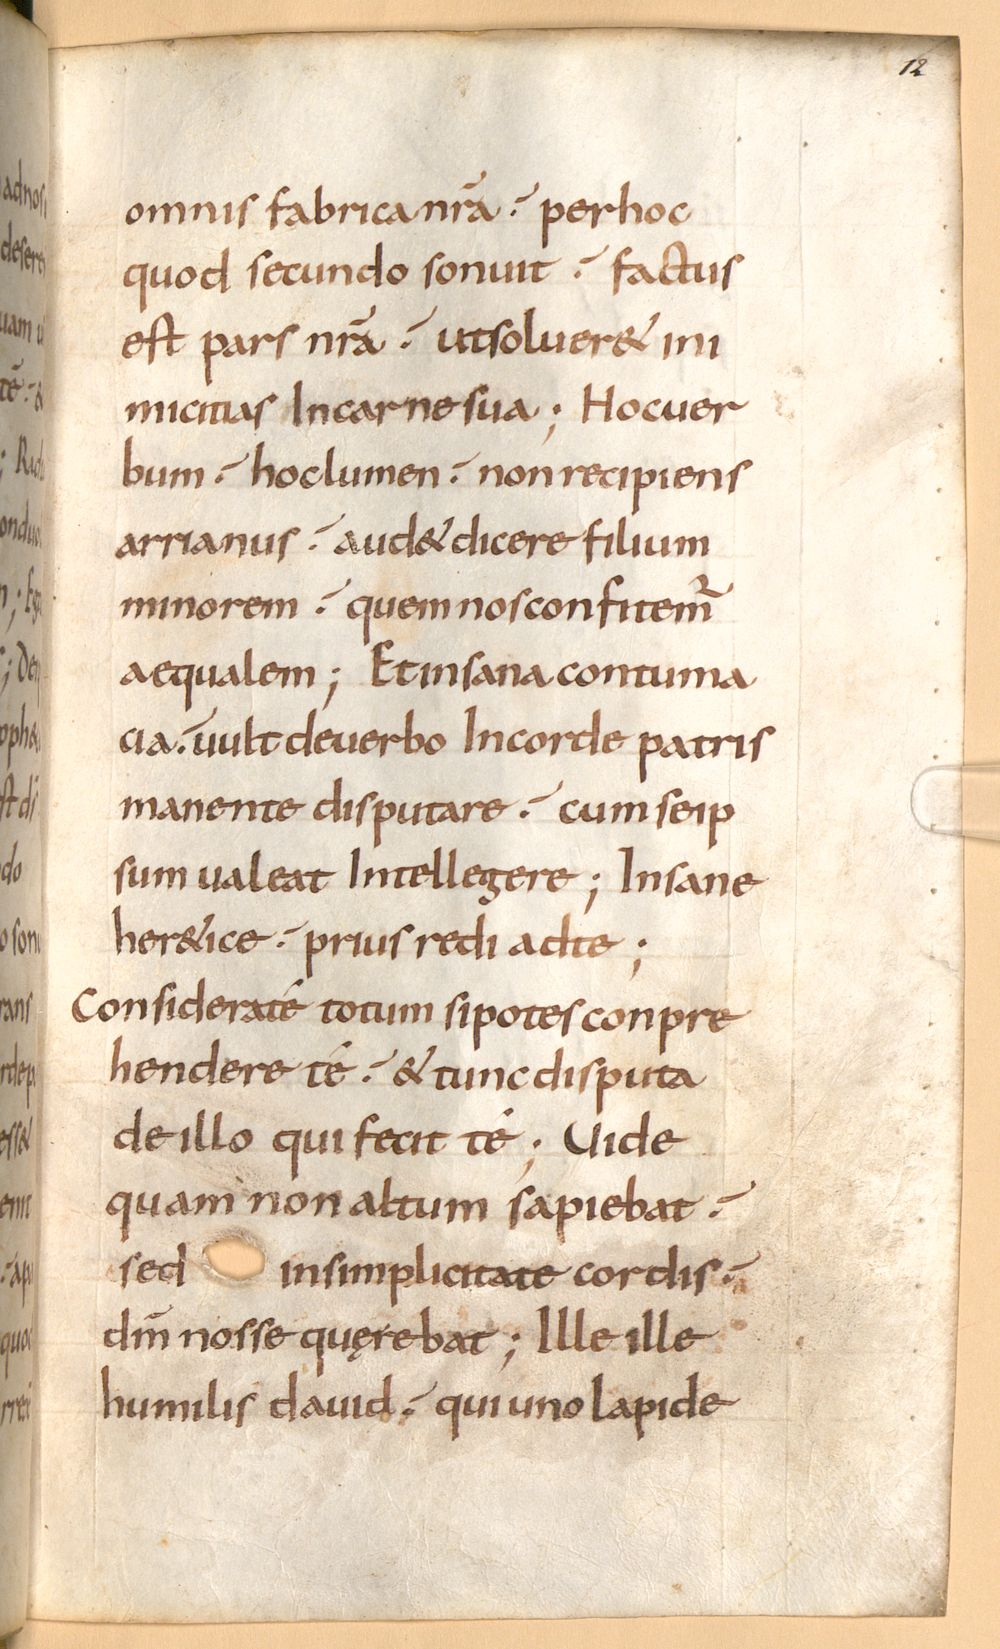 12
omnis fabrica nr̄a :· per hoc
quod secundo sonuit :· factus
est pars nr̄a :· ut soluer& ini
micitias In carne sua ; Hoc uer
bum :· hoc lumen :· non recipiens
arrianus :· aud& dicere filium
minorem :· quem nos confitem᷑
aequalem ; Et insana contuma
cia :· uult de uerbo In corde patris
manente disputare :· cum se ip
sum ualeat Intellegere ; Insane
her&ice :· prius redi ad te ;
Considera té totum si potes conpre
hendere té :· & tunc disputa
de illo qui fecit té ; Uide
quam non altum sapiebat :·
sed in simplicitate cordis :·
dm̄ nosse quęrebat ; Ille ille
humilis dauid :· qui uno lapide